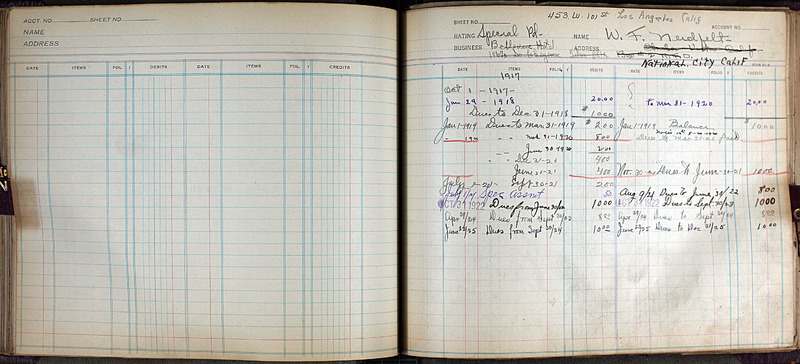 ACCT. NO. SHEET NO.
NAME
ADDRESS
DATE ITEMS FOL. DEBITS DATE ITEMS FOL. CREDITS
453 W. 101 St Los Angeles Calif
SHEET NO. ACCOUNT NO.
RATING Special Pd. NAME W. F. Neidfelt
BUSINESS Hotel ADDRESS
National City Calif
DATE ITEMS FOLIO DEBITS DATE ITEMS FOLIO CREDITS
1917
Oct 1 - 1917 -
Jan 29 - 1918 20.00 to Mar 31 - 1920 20.00
Dues to Dec 31 - 1918 $ 10.00
Jan 1 - 1919 Dues to Mar 31 - 1919 $ 2.00 Jan 1 - 1919 Balance $ 10.00
Mar 31 - 1920 8.00 Dues to Mar 31 - paid
June 30 - 1920 2.00
31-20 4.00
June 31-21 4.00 Nov. 30 - Dues to June 30-21 10.00
July Sept 30-21 2.00
Spec Assmt Aug 9/21 Dues to June 30/22 8.00
OCT 31 1922 Dues from June 30/22 10.00 OCT 31 1922 Dues to Sept 30/23 10.00
Apr /24 Dues from Sept 30/23 8.00 Apr /24 Dues to Sept 30/24 8.00
June /25 Dues from Sept 30/24 10.00 June /25 Dues to Dec 31/25 10.00